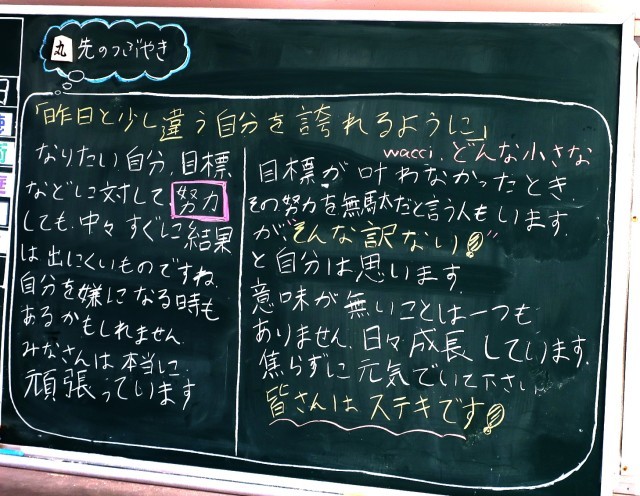 丸 先のつぶやき
「昨日と少し違う自分を誇れるように」
wacci.どんな小さな
なりたい自分、目標
などに対して、努力
しても、中々すぐに結果
は出にくいものですね。
自分を嫌になる時も
あるかもしれません。
みなさんは本当に
頑張っています
目標が叶わなかったとき
その努力を無駄だと言う人もいます。
が"そんな訳ない!"
と自分は思います。
意味が無いことは一つも
ありません。日々成長しています。
焦らずに元気でいて下さい
皆さんはステキです!